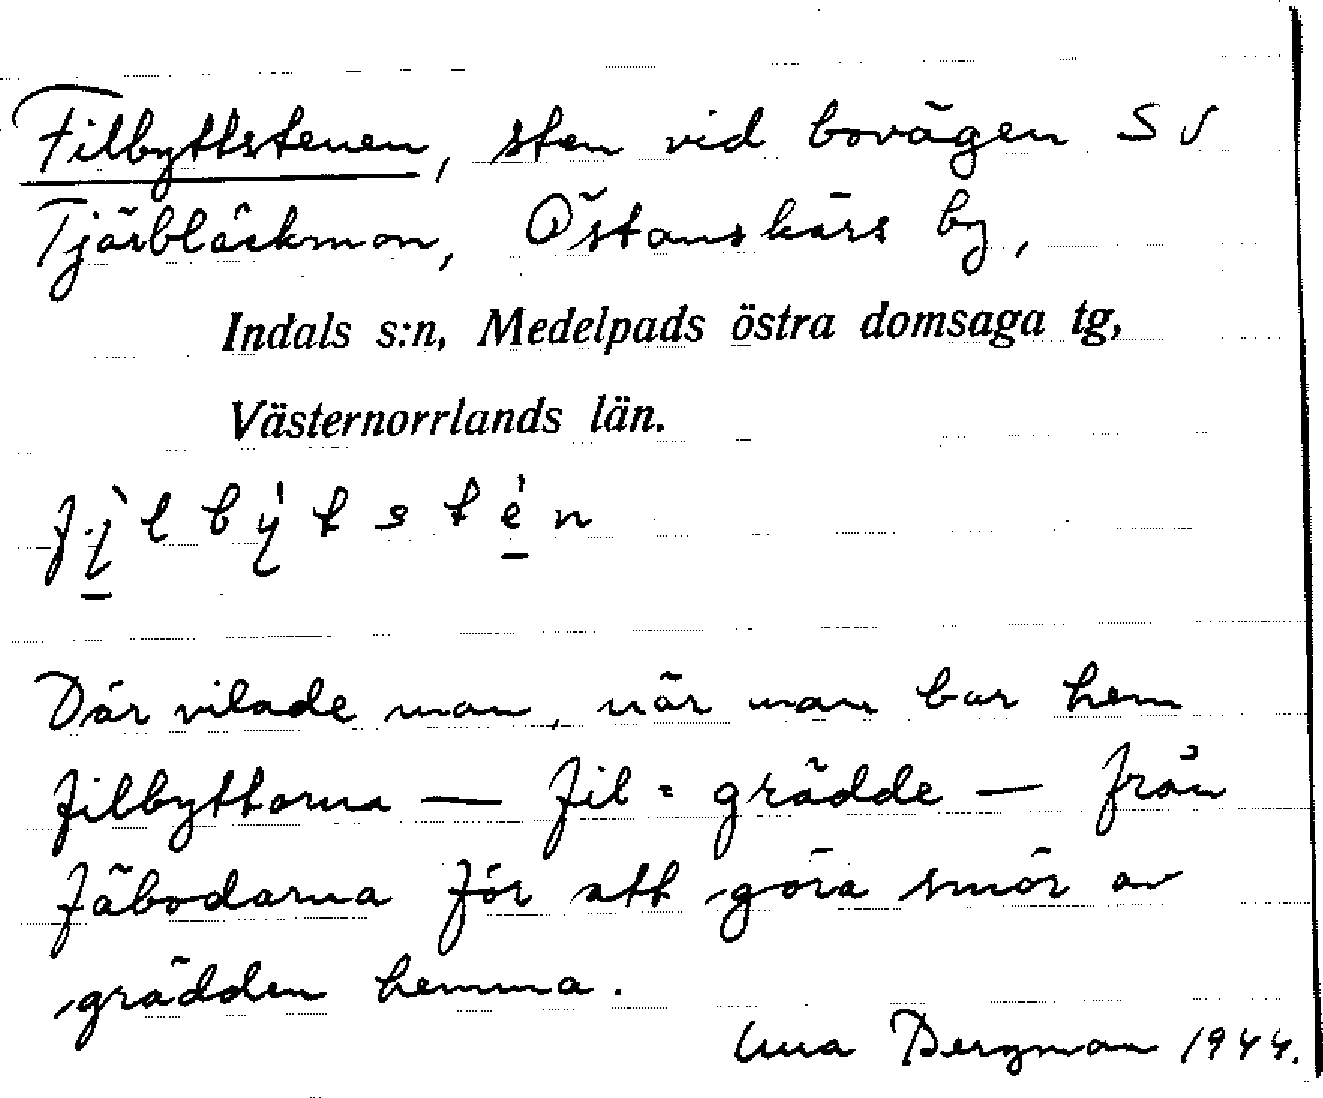 Filbyttstenen, sten vid bovägen SV
Tjärbläckmon, Östanskärs by,
Indals s:n, Medelpads östra domsaga tg,
Västernorrlands län.
Där vilade man, när man bar hem
filbyttorna — fil = grädde — från
fäbodarna för att göra smör av
grädden hemma.
Bergman 1944.